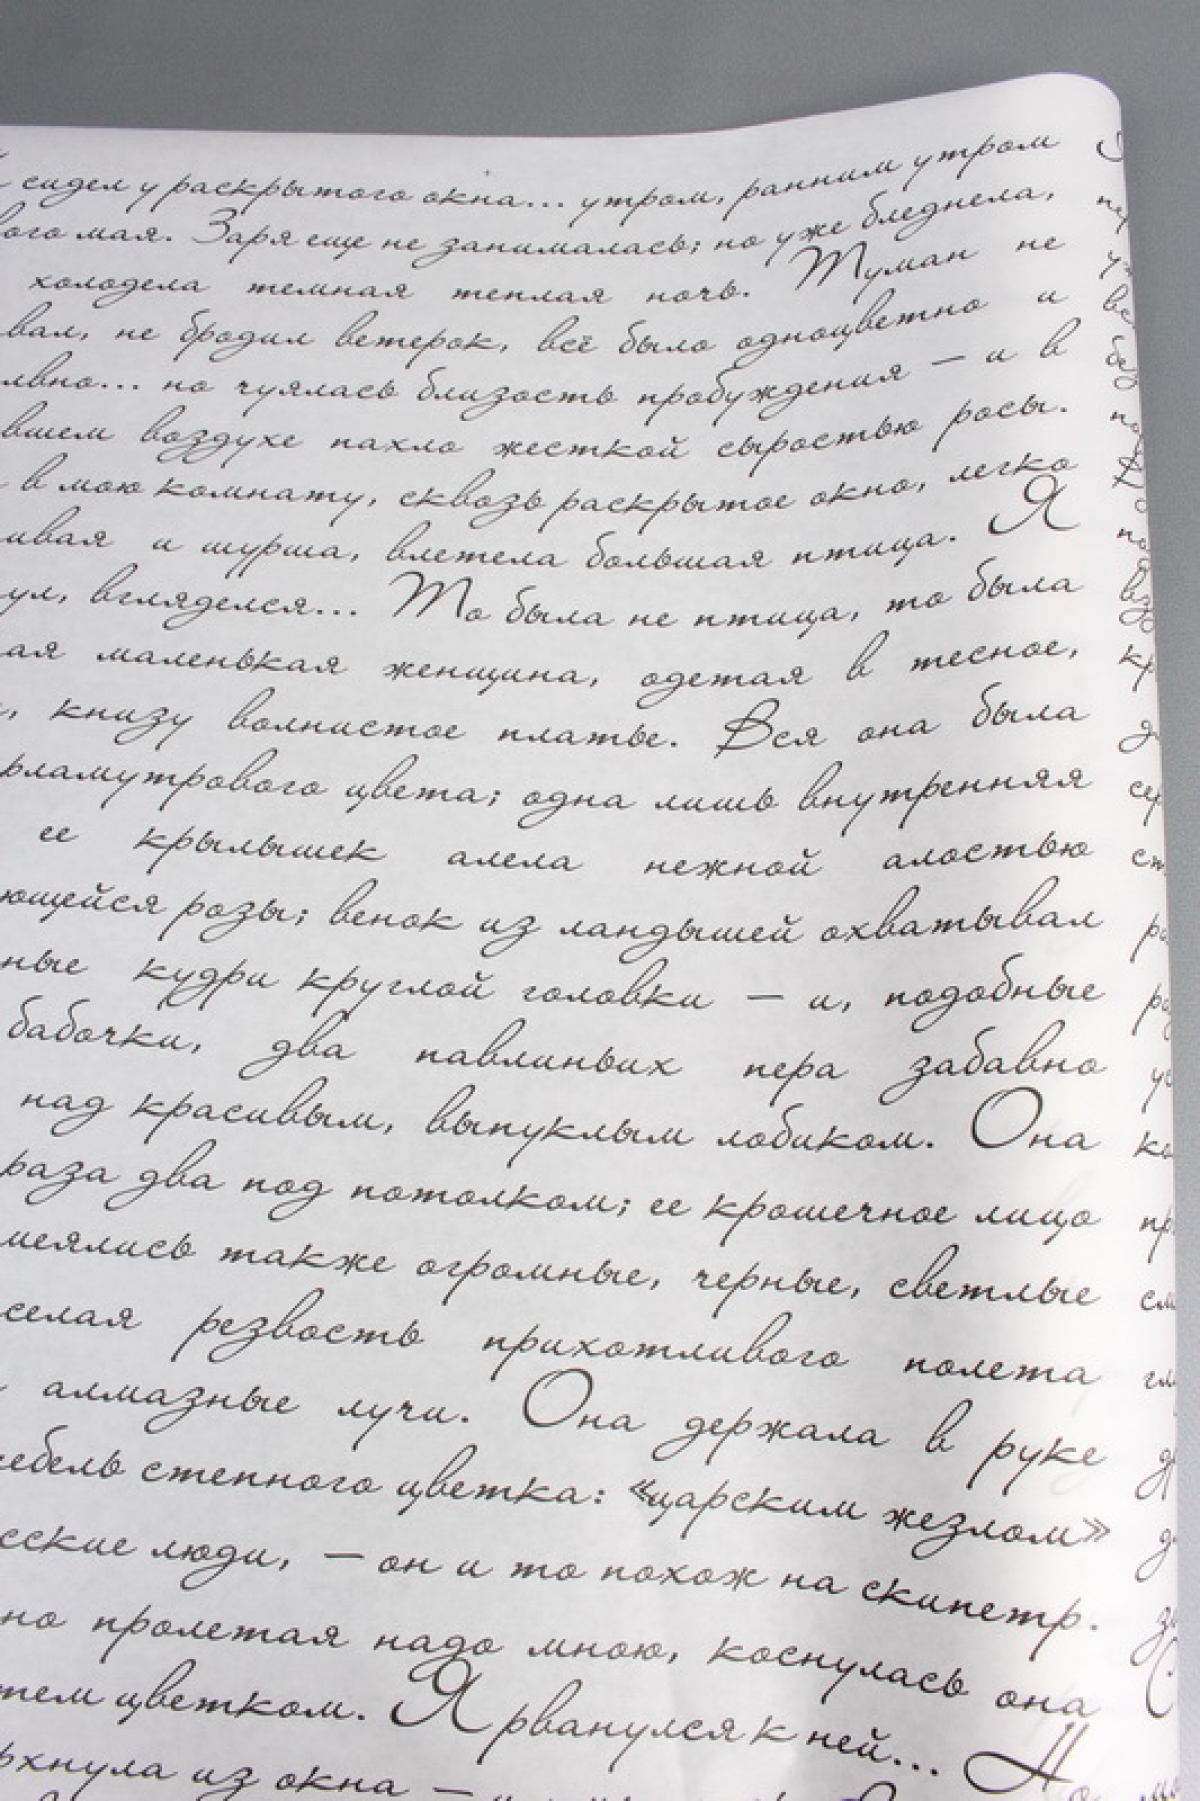 сидел у раскрытого окна... утром, ранним утром
вого мая. Заря еще не занималась; но уже бледнела,
холодела темная теплая ночь. Туман не
вал, не бродил ветерок, всё было одноцветно и
лвно... но чуялась близость пробуждения — и в
вшем воздухе пахло жесткой сыростью росы.
в мою комнату, сквозь раскрытое окно, легко
ивая и шурша, влетела большая птица. Я
ул, вгляделся... То была не птица, то была
ая маленькая женщина, одетая в тесное,
, книзу волнистое платье. Вся она была
рламутрового цвета; одна лишь внутренняя
ее крылышек алела нежной алостью
ющейся розы; венок из ландышей охватывал
ные кудри круглой головки — и, подобные
бабочки, два павлиньих пера забавно
над красивым, выпуклым лобиком. Она
раза два под потолком; ее крошечное лицо
меялись также огромные, черные, светлые
селая резвость прихотливого полета
алмазные лучи. Она держала в руке
ебель степного цветка: «царским жезлом»
сские люди, — он и то похож на скипетр.
но пролетая надо мною, коснулась она
тем цветком. Я рванулся к ней... Но
рхнула из окна —